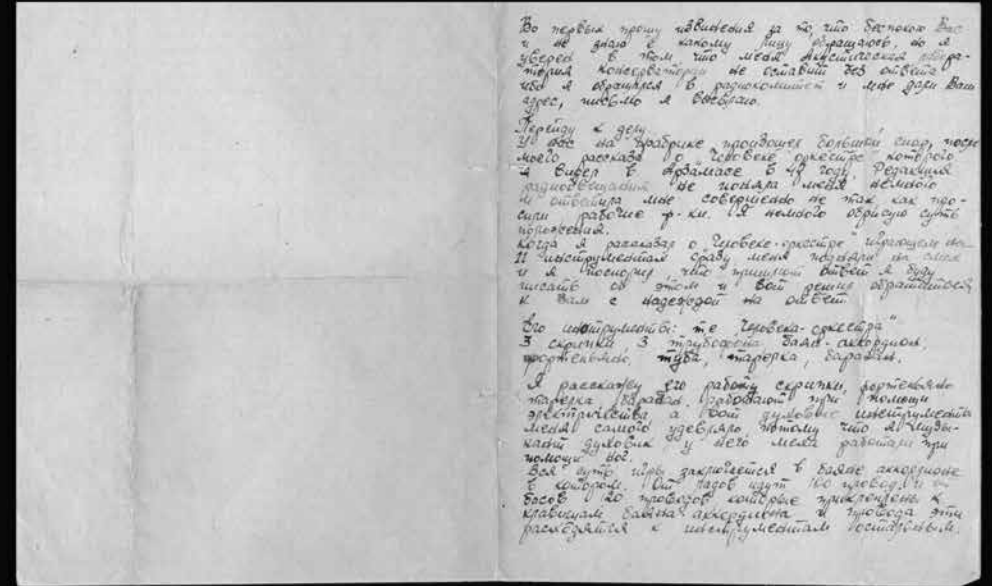 Во первых прошу извинения за то, что беспокою Вас
и не знаю к какому лицу обращаюсь, но я
уверен в том что меня Акустическая лабора-
тория Консерватории не оставит без ответа
ибо я обращался в радиокомитет и мне дали Ваш
адрес, письмо я высылаю.
Перейду к делу.
У нас на фабрике произошел большой спор, после
моего рассказа о "Человеке оркестре" которого
я видел в Арзамасе в 48 году. Редакция
радиовещания не поняла меня немного
и ответила мне совершенно не так как про-
сили рабочие ф-ки. Я немного обрисую суть
положения.
Когда я рассказал о "Человеке-оркестре" играющем на
11 инструментах сразу меня подняли на смех
и я поспорил, что пришлют ответ я буду
писать об этом и вот решил обратиться
к Вам с надеждой на ответ.
Его инструменты: т.е. "Человека-оркестра"
3 скрипки, 3 баян-аккордион,
фортепьяно, туба, тарелка, барабан.
Я расскажу его работу скрипки, фортепьяно
тарелка барабан работают при помощи
электричества а вот духовые инструменты
меня самого удевляло, потому что я музы-
кант духовик у него меха работали при
помощи ног.
Вся суть игры заключается в баяне аккордионе
в котором. От ладов идут 100 проводов и от
басов 120 проводов которые прикреплены к
клавишам баяна аккордиона и провода эти
расходятся к инструментам остальным.